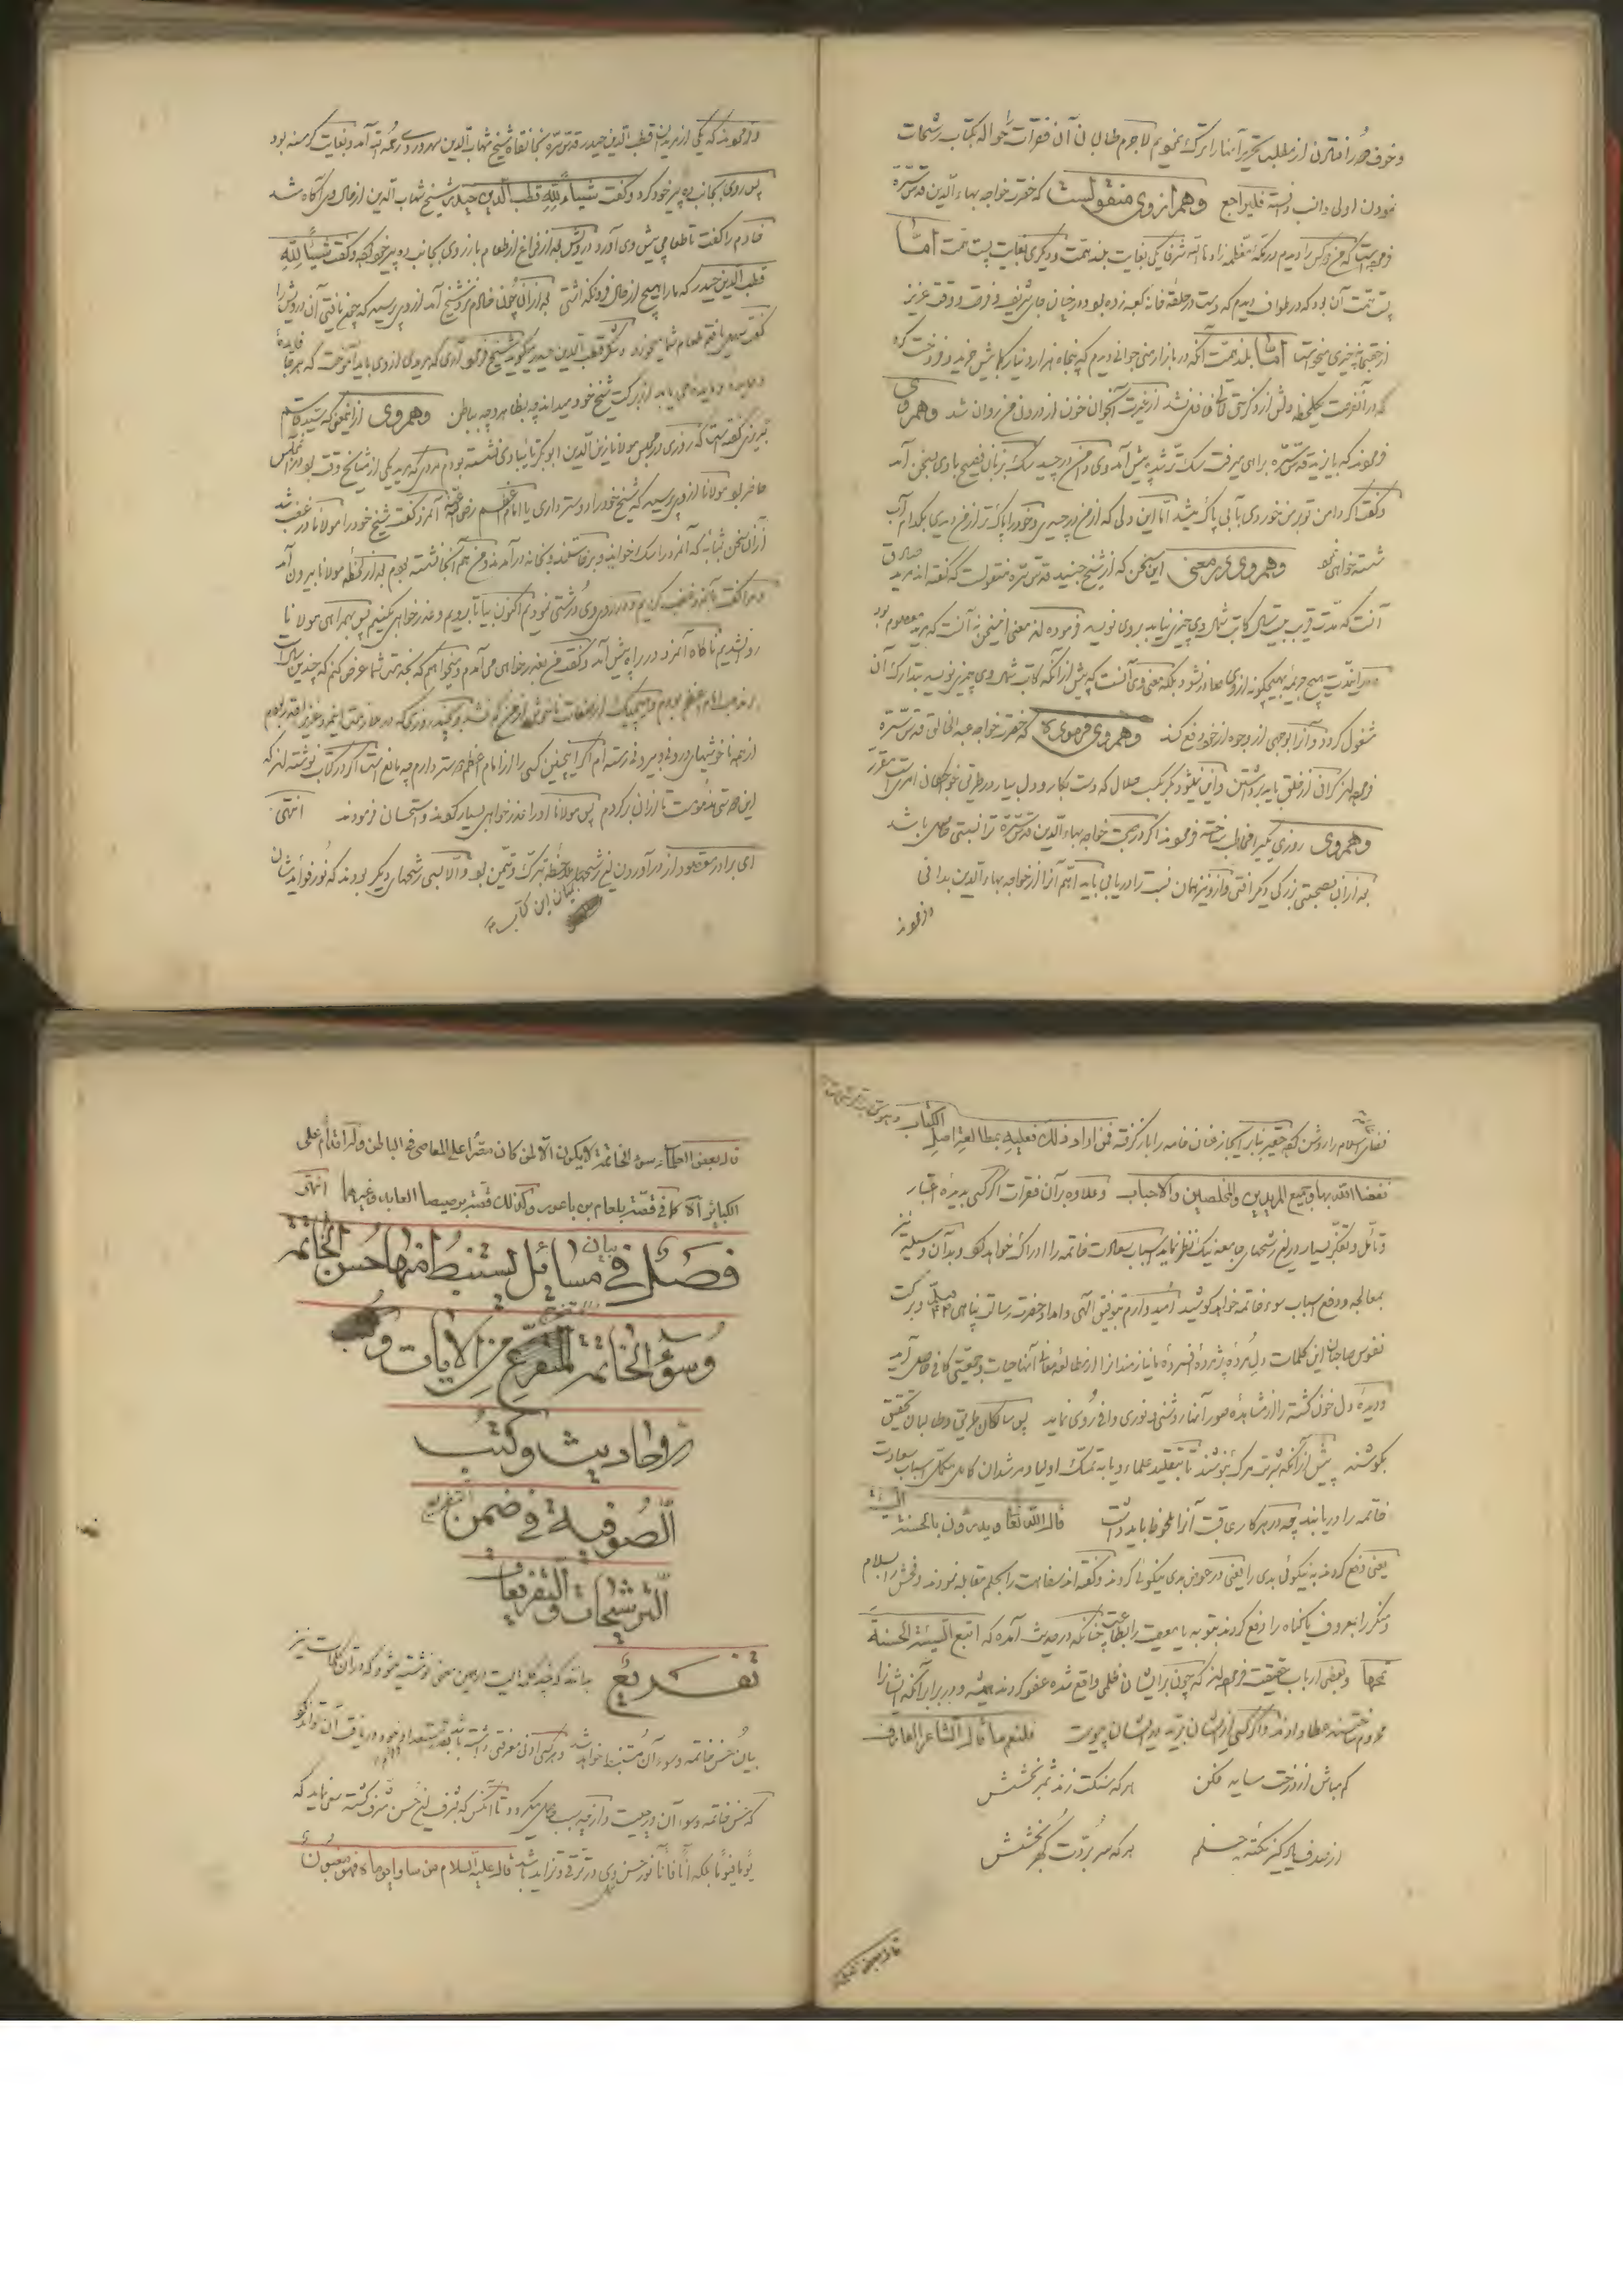 وخوف دور افتادن از مطلب تحریر آنها را ترک نمودیم لاجرم طالبان آن فقرات را حواله بکتاب رشحات
نمودن اولی وانسب دانسته فلیراجع وهم از وی منقولست که حضرت خواجه بهاء الدین قدس سره
فرموده است که من دو کس را دیدم در مکه معظمه زادها الله شرفا یکی بغایت بلند همت ودیگری بغایت پست همت اما
پست همت آن بود که در طواف دیدم که دست در حلقه خانه کعبه زده بود ودر چنان جای شریف ووقت عزیز
از حقتعالی چیزی میخواست اما بلند همت آنکه در بازار منی جوانی دیدم که پنجاه هزار دینار کمابیش خرید وفروخت کرد
که در آنفرصت یکلحظه دلش از ذکر حق تعالی غافل نشد از غیرت آنجوان خون از درون من روان شد وهم از وی
فرمودند که بایزید قدس سره براهی میرفت سگ تر شده پیش آمد وی دامن در چید سگ بزبان فصیح با وی بسخن آمد
وگفت اگر دامن تو بر من خوردی بآبی پاک میشد اما این دلی که از من در چیدی وخود را پاکتر از من دیدی بکدام آب
شسته خواهی شد وهم وی در معنی این سخن که از شیخ جنید قدس سره منقولست که گفته اند مرید صادق
آنست که مدت قریب بیست سال کاتب شمال وی چیزی نیابد بر وی نویسد فرموده اند معنی این سخن نه آنست که مرید معصوم بود
ودر اینمدت هیچ جریمه بهیچگونه از وی صادر نشود بلکه معنی وی آنست که پیش از آنکه کاتب شمال وی چیزی نویسد بتدارک آن
مشغول گردد وآنرا بوجهی از وجوه از خود دفع کند وهم وی فرموده که حضرت خواجه عبد الخالق قدس سره
فرموده اند گرانی از خلق باید برداشتن واین نمیشود مگر بکسب حلال که دست بکار ودل بیار در طریق خواجگان امری است مقرر
وهم وی روزی یکی را مخاطب ساخته فرمودند اگر در صحبت خواجه بهاء الدین قدس سره ترا نسبتی حاصل باشد
بعد از آن بصحبت بزرگی دیگر افتی واز او نیز همان نسبت را دریابی باید که هم آنرا از خواجه بهاء الدین بدانی
وفرمودند
وفرمودند که یکی از مریدان قطب الدین حیدر قدس سره بخانقاه شیخ شهاب الدین سهروردی رحمه الله آمد وبغایت گرسنه بود
پس روی بجانب ده پیر خود کرد وگفت شیئا لله قطب الدین حیدر شیخ شهاب الدین از حال وی آگاه شد
خادم را گفت تا طعامی پیش وی آورد درویش بعد از فراغ از طعام باز روی بجانب ده پیر خود کرد وگفت شیئا لله
قطب الدین حیدر که ما را هیچ از حال فرو نگذاشتی بعد از آن چون خادم نزد شیخ آمد از وی پرسید که چون یافتی آن درویش را
گفت طعام شما میخورد وشکر قطب الدین حیدر میگوید شیخ فرمود آدمی که مریدی از وی باید آموخت که هر جا فایده
از برکت شیخ خود میداند چه بظاهر وچه بباطن وهم وی از انجمن که سید قاسم
تبریزی گفته است که روزی در مجلس مولانا زین الدین ابو بکر تایبادی نشسته بودم مردی که مرید یکی از مشایخ وقت بود در آن مجلس
حاضر بود مولانا از وی پرسید که شیخ خود را دوستر داری یا امام اعظم رضی الله عنه آنمرد گفت شیخ خود را مولانا در غضب شد
از آن سخن بمثابه که آنمرد را سگ خواند وبرخاستند وبخانه در آمدند ومن هم آنجا نشسته بودم بعد از لحظه مولانا بیرون آمد
ومرا گفت با آنمرد غضب کردیم وبر روی وی درشتی نمودیم اکنون بیا تا برویم وعذر خواهی کنیم پس بهمراهی مولانا
روانشدیم ناگاه آنمرد در راه پیش آمد وگفت من بعذر خواهی می آمدم ومیخواهم که بخدمت شما عرض کنم که چندین سال است
بر مذهب امام اعظم بودم وهیچیک از صفات ناخوش از من کم نشد وبچند روزی که در ملازمت اینمرد عزیز افتاده بودم
از همه ناخوشیهای درون وبیرون رسته ام اگر اینچنین کسی را از امام اعظم دوستر دارم چه مانع است اگر در کتاب نوشته اند که
این دوستی مذمومست تا از آن برگردم پس مولانا او را عذر خواهی بسیار کردند واستحسان فرمودند انتهی
ای برادر مقصود از در آوردن این رشحها ملاحظه تبرک وتیمن بود والا بسی رشحهای دیگر بودند که نور فواید شان
این کتاب
الکتاب
فقراء اسلام را روشن کند حقیر بنابر ایجاز عنان خامه را باز گرفته فمن اراد ذلک فعلیه بمطالعة اصل
نفعنا الله بها وجمیع المریدین والمخلصین والاحباب وعلاوه بر آن فقرات اگر کسی بدیده اعتبار
وتأمل وتفکر بسیار در این رشحهای جامعه نیک نظر نماید اسباب سعادت خاتمه را ادراک خواهد کرد وبدان وسیله نیز
بمعالجه ودفع اسباب سوء خاتمه خواهد کوشید امیدوارم بتوفیق الهی وامداد حضرت رسالت پناهی وبرکت
نفوس صاحبان این کلمات دل مرده پژمرده افسرده ما نیازمندانرا از مطالعه معانی آنها حیات وجمعیتی کافی حاصل آید
ودیده دل خون گشته را از مشاهده صور آنها روشنی ونوری وافی روی نماید پس سالکان طریق وطالبان تحقیق
بکوشند پیش از آنکه شربت مرگ بنوشند تا بتقلید علماء ویا به تمسک اولیا ومرشدان کامل مکمل اسباب سعادت
خاتمه را دریابند چه در هر کاری عاقبت آنرا ملحوظ باید داشت قال الله تعالی ویدرؤن بالحسنة السیئة
یعنی دفع کردند به نیکوئی بدی را یعنی در عوض بدی نیکوئی کردند وگفته اند سفاهت را بحلم مقابله نمودند وفحش را بسلام
ومنکر را بمعروف یا گناه را دفع کردند بتوبه یا معصیت را بطاعت چنانکه در حدیث آمده که اتبع السیئة الحسنة
تمحها وبعضی ارباب حقیقت فرموده اند که چون بر ایشان ظلمی واقع شده عفو کردند ودر برابر آنکه ایشانرا
محروم ساختند عطا دادند واگر کسی از ایشان برید بدیشان پیوست فلنعم ما قال الشاعر العارف
کم مباش از درخت سایه فکن هر که سنگت زند ثمر بخشش
از صدف یاد گیر نکته حلم هر که سر بردت گهر بخشش
قال بعض العلماء
قال بعض العلماء سوء الخاتمة لا یکون الا لمن کان مصرا علی المعاصی فی الباطن وله اقدام علی
الکبائر کما فی قصة بلعام بن باعور وکذلک قصة برصیصا العابد وغیرهما انتهی
فصل فی بیان مسائل تستنبط منها حسن الخاتمة
وسوء الخاتمة المتفرع من الآیات و
الاحادیث وکتب
الصوفیة فی ضمن
الترشحات والتفریعات
تفریع
بیان حسن خاتمه وسوء آن مستنبط خواهد شد
که حسن خاتمه وسوء آن در چیست واز چه سبب حاصل میگردد تا آنکس که بشرف این حسن مشرف گشته سعی نماید که
یوما فیوما بلکه آنا فآنا نور حسن وی در ترقی وتزاید باشد قال علیه السلام من ساوا یوماه فهو مغبون